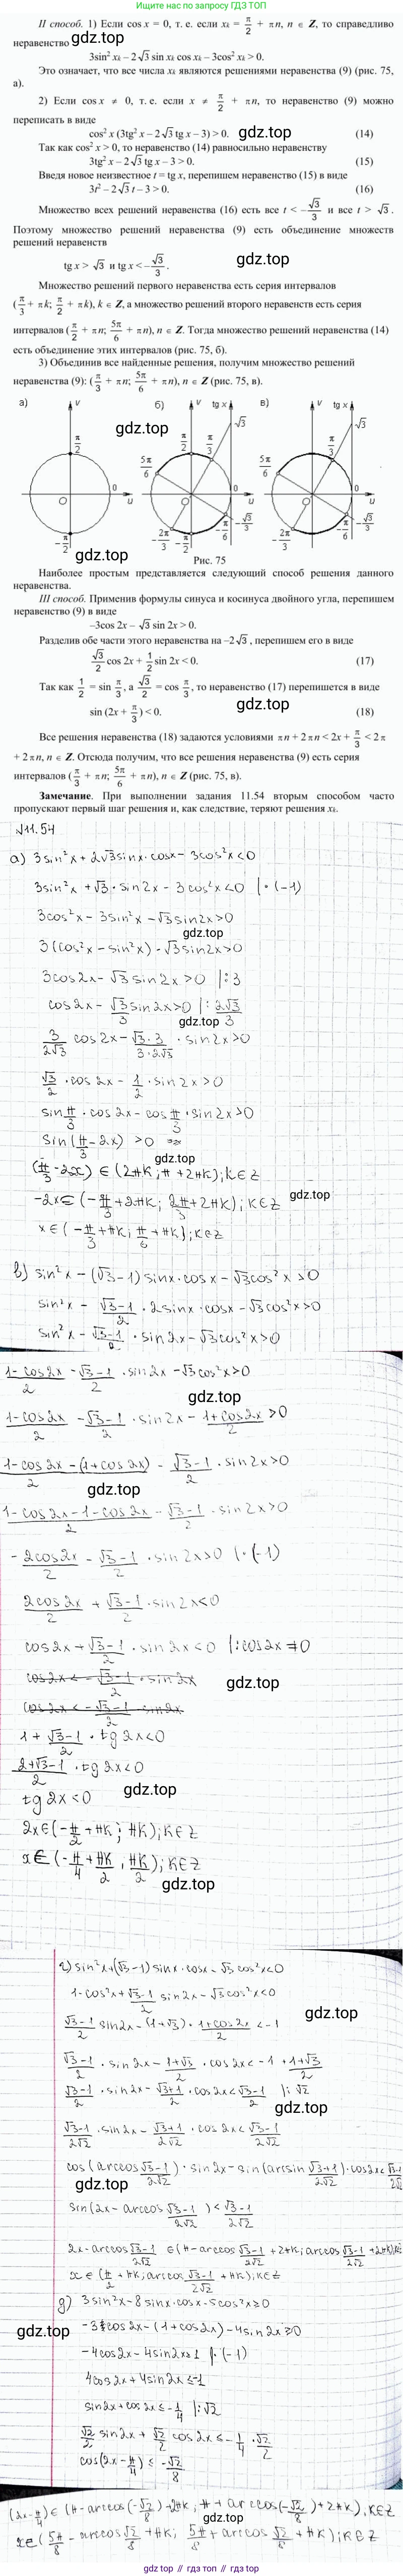 Ищите нас по запросу ГДЗ ТОП
II способ. 1) Если cos x = 0, т. е. если xₖ = π/2 + πn, n ∈ Z, то справедливо
неравенство gdz.top
3sin² xₖ – 2√3 sin xₖ cos xₖ – 3cos² xₖ > 0.
Это означает, что все числа xₖ являются решениями неравенства (9) (рис. 75,
а).
2) Если cos x ≠ 0, т. е. если x ≠ π/2 + πn, то неравенство (9) можно
переписать в виде
cos² x (3tg² x – 2√3 tg x – 3) > 0. gdz.top (14)
Так как cos² x > 0, то неравенство (14) равносильно неравенству
3tg² x – 2√3 tg x – 3 > 0. (15)
Введя новое неизвестное t = tg x, перепишем неравенство (15) в виде
3t² – 2√3 t – 3 > 0. (16)
Множество всех решений неравенства (16) есть все t < –√3/3 и все t > √3.
Поэтому множество решений неравенства (9) есть объединение множеств
решений неравенств
tg x > √3 и tg x < –√3/3. gdz.top
Множество решений первого неравенства есть серия интервалов
(π/3 + πk; π/2 + πk), k ∈ Z, а множество решений второго неравенств есть серия
интервалов (π/2 + πn; 5π/6 + πn), n ∈ Z. Тогда множество решений неравенства (14)
есть объединение этих интервалов (рис. 75, б).
3) Объединив все найденные решения, получим множество решений
неравенства (9): (π/3 + πn; 5π/6 + πn), n ∈ Z (рис. 75, в).
а) v б) v tg x в) v tg x
gdz.top
π/2 π/2 π/3 √3 π/3 √3
5π/6 5π/6
O 0 u O 0 u O 0 u
–π/2 –2π/3 –π/2 –π/6 –√3/3 –2π/3 –π/6 –√3/3
gdz.top
Рис. 75
Наиболее простым представляется следующий способ решения данного
неравенства.
III способ. Применив формулы синуса и косинуса двойного угла, перепишем
неравенство (9) в виде
–3cos 2x – √3 sin 2x > 0.
Разделив обе части этого неравенства на –2√3, перепишем его в виде
√3/2 cos 2x + 1/2 sin 2x < 0. (17)
Так как 1/2 = sin π/3, а √3/2 = cos π/3, то неравенство (17) перепишется в виде
sin (2x + π/3) < 0. gdz.top (18)
Все решения неравенства (18) задаются условиями πn + 2πn < 2x + π/3 < 2π
+ 2πn, n ∈ Z. Отсюда получим, что все решения неравенства (9) есть серия
интервалов (π/3 + πn; 5π/6 + πn), n ∈ Z (рис. 75, в).
Замечание. При выполнении задания 11.54 вторым способом часто
пропускают первый шаг решения и, как следствие, теряют решения xₖ.
№11.54
а) 3sin²x + 2√3sinx·cosx – 3cos²x<0
3sin²x + √3·sin2x – 3cos²x<0 |·(-1)
3cos²x – 3sin²x – √3sin2x>0
gdz.top
3(cos²x – sin²x) – √3sin2x>0
3cos2x – √3sin2x>0 |:3
cos2x – √3/3 sin2x>0 |: 2√3/3
gdz.top
3/2√3 cos2x – √3·3/3·2√3 · sin2x>0
√3/2 · cos2x – 1/2 · sin2x>0
sin π/3 · cos2x – cos π/3 · sin2x>0
sin(π/3 – 2x) >0 ⇒
gdz.top
(π/3 – 2x) ∈ (2πk; π + 2πk); k∈Z
-2x∈(-π/3 + 2πk; 2π/3 + 2πk); k∈Z gdz.top
x∈(-π/3 + πk; π/6 + πk); k∈Z
в) sin²x – (√3–1)sinx·cosx – √3cos²x>0
sin²x – √3–1/2 · 2sinx·cosx – √3cos²x>0
sin²x – √3–1/2 · sin2x – √3cos²x>0
1–cos2x/2 – √3–1/2 · sin2x – √3cos²x>0
gdz.top
1–cos2x/2 – √3–1/2 · sin2x – 1+cos2x/2 >0
1–cos2x–(1+cos2x)/2 – √3–1/2 · sin2x>0
gdz.top
1–cos2x–1–cos2x/2 – √3–1/2 · sin2x>0
– 2cos2x/2 – √3–1/2 · sin2x>0 |·(-1)
2cos2x/2 + √3–1/2 · sin2x<0
cos2x + √3–1/2 · sin2x<0 |:cos2x≠0
cos2x < – √3–1/2 · sin2x
gdz.top
cos2x < – √3–1/2 · sin2x
1 + √3–1/2 · tg2x<0
2+√3–1/2 · tg2x<0
gdz.top
tg2x<0
2x∈(-π/2 + πk; πk); k∈Z
x∈(-π/4 + πk/2; πk/2); k∈Z
gdz.top
г) sin²x+(√3–1)sinx·cosx–√3cos²x<0
1–cos²x+ √3–1/2 sin2x – √3cos²x<0
gdz.top
√3–1/2 sin2x – (1+√3)· 1+cos2x/2 < –1
√3–1/2 · sin2x – 1+√3/2 · cos2x< –1 + 1+√3/2
√3–1/2 · sin2x – √3+1/2 · cos2x< √3–1/2 |:√2
gdz.top
√3–1/2√2 · sin2x – √3+1/2√2 · cos2x< √3–1/2√2
cos(arccos √3–1/2√2) · sin2x – sin(arcsin √3+1/2√2)·cos2x< √3–1/2√2
gdz.top
sin(2x – arccos √3–1/2√2) < √3–1/2√2
2x–arccos √3–1/2√2 ∈(π–arccos √3–1/2√2 + 2πk; arccos √3–1/2√2 + 2πk);
x∈(π/2 + πk; arccos √3–1/2√2 + πk); k∈Z
gdz.top
д) 3sin²x–8sinx·cosx–5cos²x≥0
gdz.top
–4cos2x–4sin2x≥1 |·(-1)
4cos2x+4sin2x≤–1
sin2x+cos2x≤–1/4 |:√2
√2/2 sin2x + √2/2 cos2x≤ –1/4 · √2/2
cos(2x–π/4) ≤ –√2/8
(2x–π/4) ∈ (π–arccos(–√2/8)+2πk; π+arccos(–√2/8)+2πk), k∈Z
gdz.top
x∈(5π/8 – arccos √2/8 + πk; 5π/8 + arccos √2/8 + πk); k∈Z
gdz.top // gdz.top // gdz.top